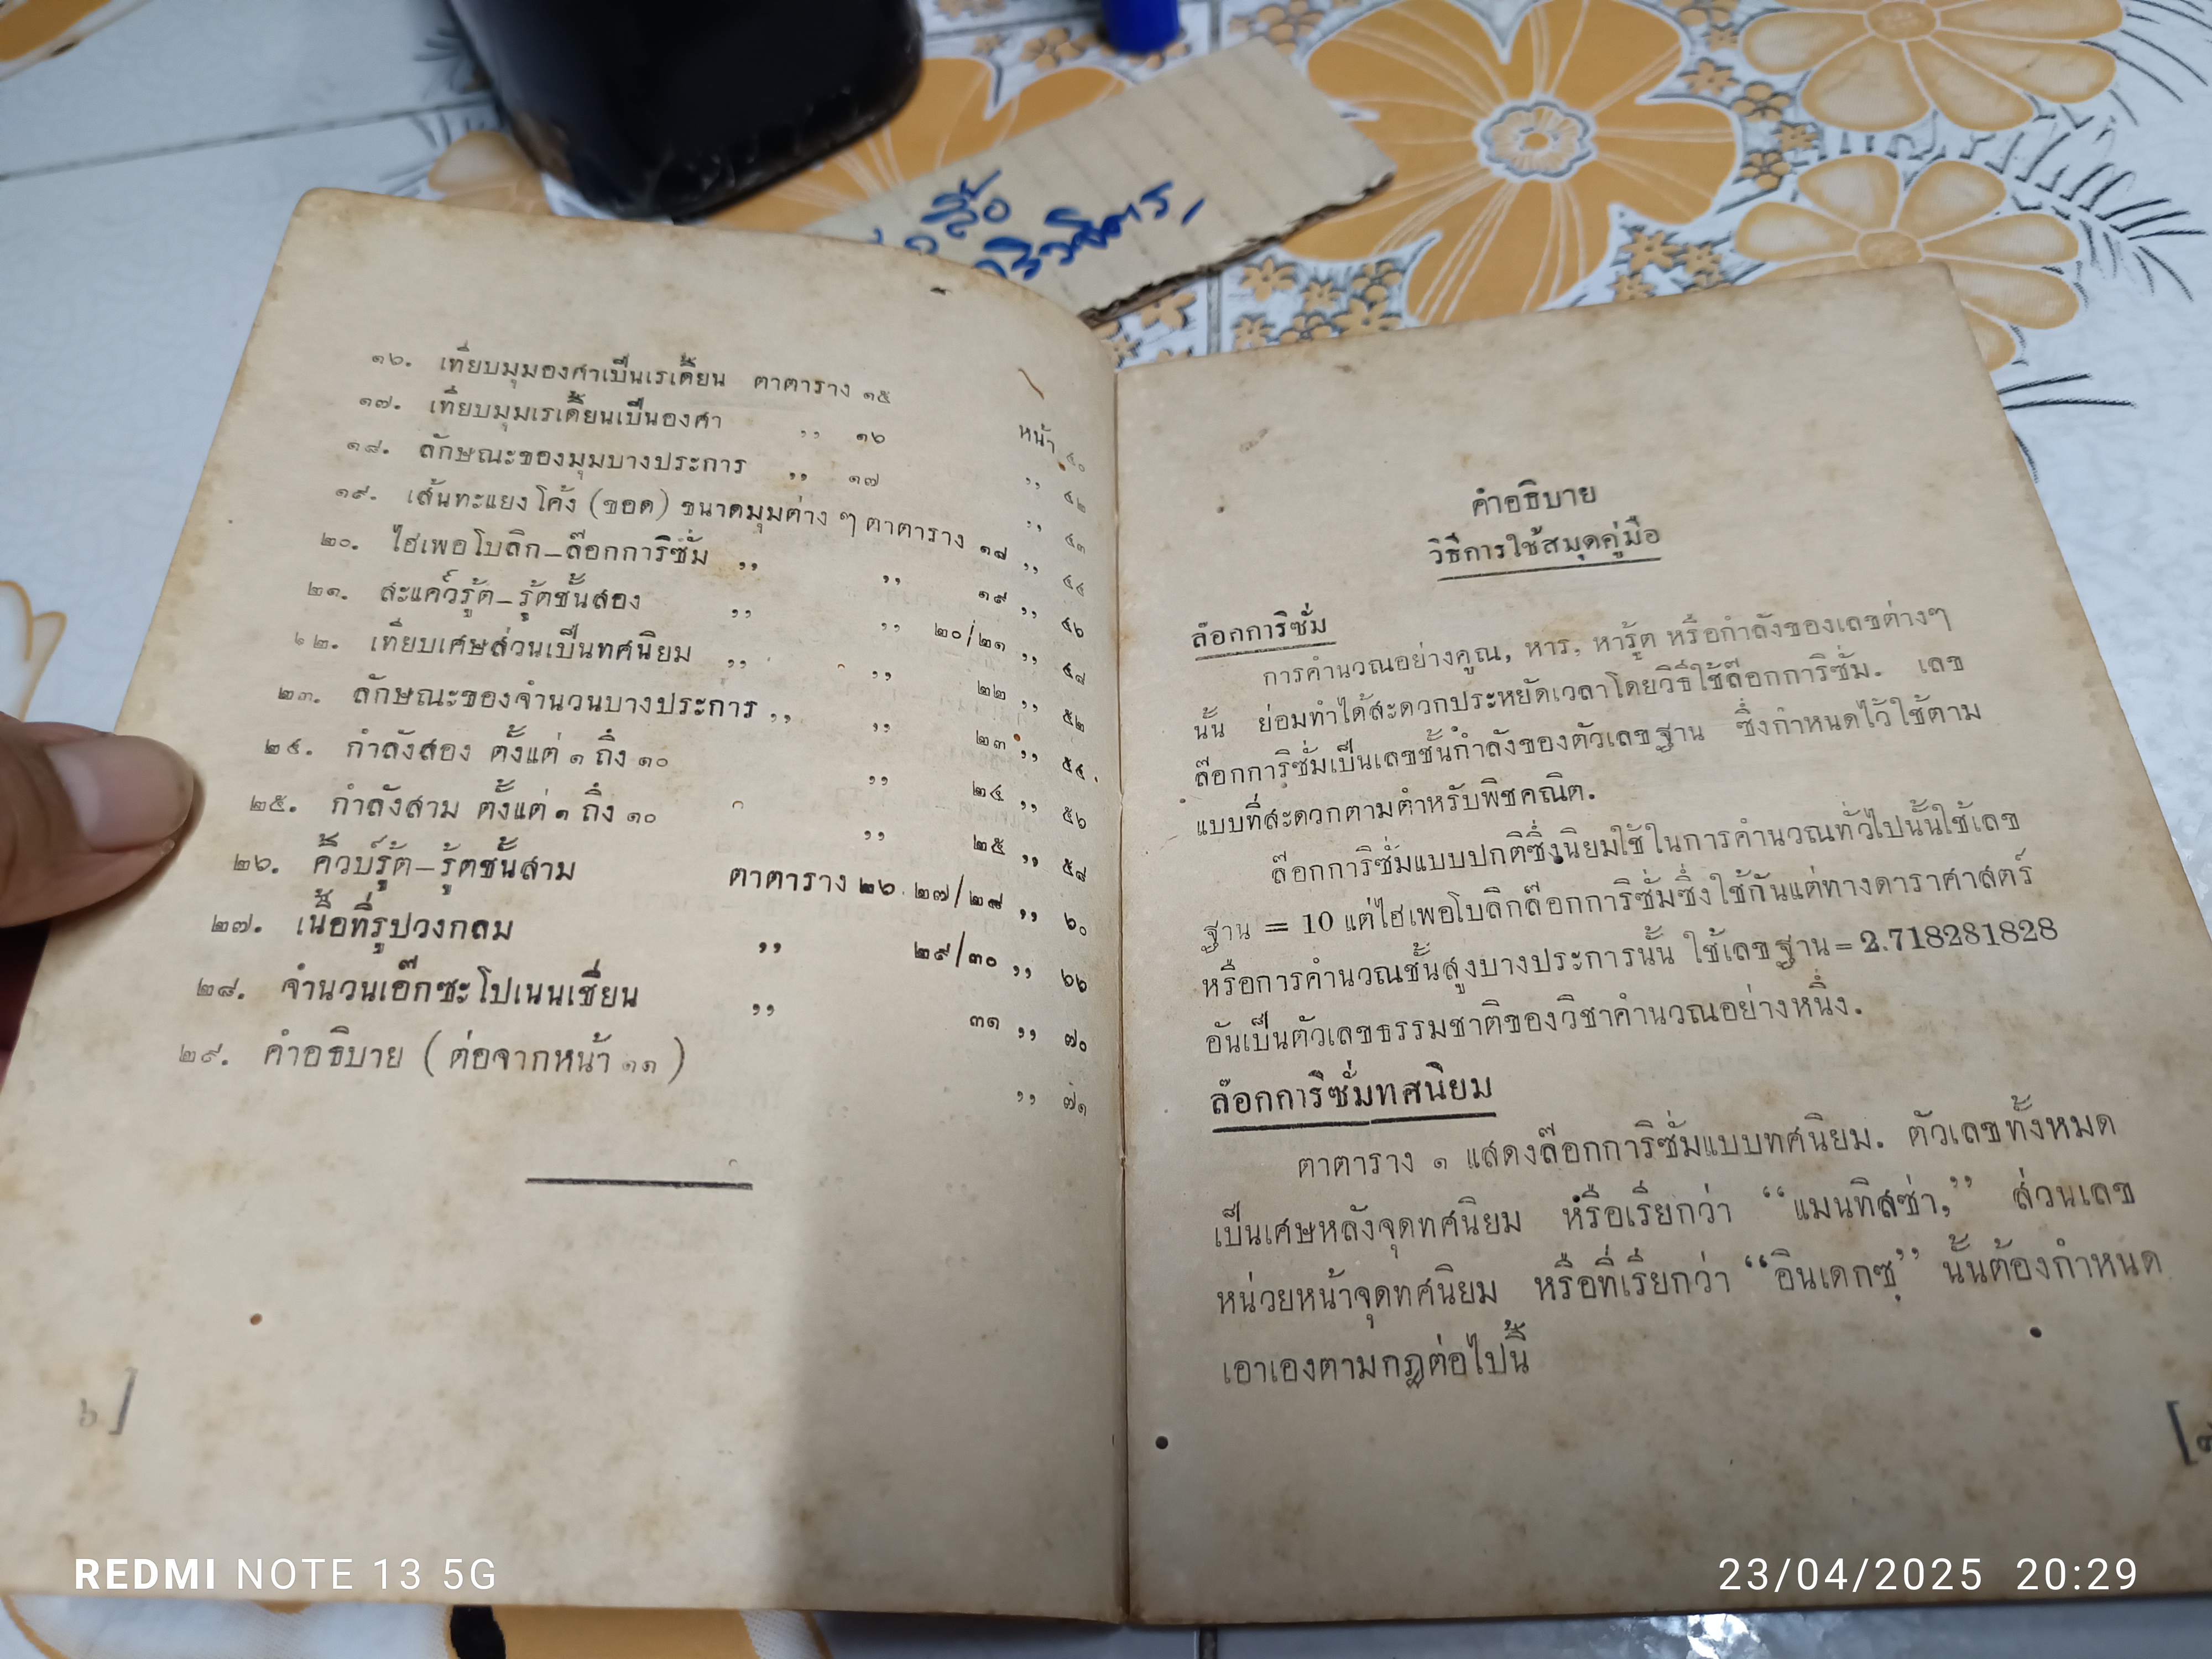 ๑๖. เทียบมุมองศาเป็นเรเดี้ยน ตาตาราง ๑๕ หน้า ๔๐
๑๗. เทียบมุมเรเดี้ยนเป็นองศา ,, ๑๖ ,, ๔๒
๑๘. ลักษณะของมุมบางประการ ,, ๑๗ ,, ๔๓
๑๙. เส้นทะแยงโค้ง (ขอด) ขนาดมุมต่าง ๆ ตาตาราง ๑๘ ,, ๔๔
๒๐. ไฮเพอโบลิก–ล๊อกการิซั่ม ,, ,, ๑๙ ,, ๔๖
๒๑. สะแคว์รู้ต–รู้ตชั้นสอง ,, ,, ๒๐/๒๑ ,, ๔๘
๒๒. เทียบเศษส่วนเป็นทศนิยม ,, ,, ๒๒ ,, ๕๒
๒๓. ลักษณะของจำนวนบางประการ ,, ,, ๒๓ ,, ๕๔
๒๔. กำลังสอง ตั้งแต่ ๑ ถึง ๑๐ ,, ๒๔ ,, ๕๖
๒๕. กำลังสาม ตั้งแต่ ๑ ถึง ๑๐ ,, ๒๕ ,, ๕๘
๒๖. คิ้วบ์รู้ต–รู้ตชั้นสาม ตาตาราง ๒๖. ๒๗/๒๘ ,, ๖๐
๒๗. เนื้อที่รูปวงกลม ,, ๒๙/๓๐ ,, ๖๖
๒๘. จำนวนเอ๊กซะโปเนนเชี่ยน ,, ๓๑ ,, ๗๐
๒๙. คำอธิบาย (ต่อจากหน้า ๑๑) ,, ๗๑
๖]
คำอธิบาย
วิธีการใช้สมุดคู่มือ
ล๊อกการิซั่ม
การคำนวณอย่างคูณ, หาร, หารู้ต หรือกำลังของเลขต่างๆ
นั้น ย่อมทำได้สะดวกประหยัดเวลาโดยวิธีใช้ล๊อกการิซั่ม. เลข
ล๊อกการิซั่มเป็นเลขชั้นกำลังของตัวเลขฐาน ซึ่งกำหนดไว้ใช้ตาม
แบบที่สะดวกตามตำหรับพิชคณิต.
ล๊อกการิซั่มแบบปกติซึ่งนิยมใช้ในการคำนวณทั่วไปนั้นใช้เลข
ฐาน = 10 แต่ไฮเพอโบลิกล๊อกการิซั่มซึ่งใช้กันแต่ทางดาราศาสตร์
หรือการคำนวณชั้นสูงบางประการนั้น ใช้เลขฐาน = 2.718281828
อันเป็นตัวเลขธรรมชาติของวิชาคำนวณอย่างหนึ่ง.
ล๊อกการิซั่มทศนิยม
ตาตาราง ๑ แสดงล๊อกการิซั่มแบบทศนิยม. ตัวเลขทั้งหมด
เป็นเศษหลังจุดทศนิยม หรือเรียกว่า “แมนทิสซ่า,” ส่วนเลข
หน่วยหน้าจุดทศนิยม หรือที่เรียกว่า “อินเดกซฺ” นั้นต้องกำหนด
เอาเองตามกฎต่อไปนี้
REDMI NOTE 13 5G
23/04/2025 20:29